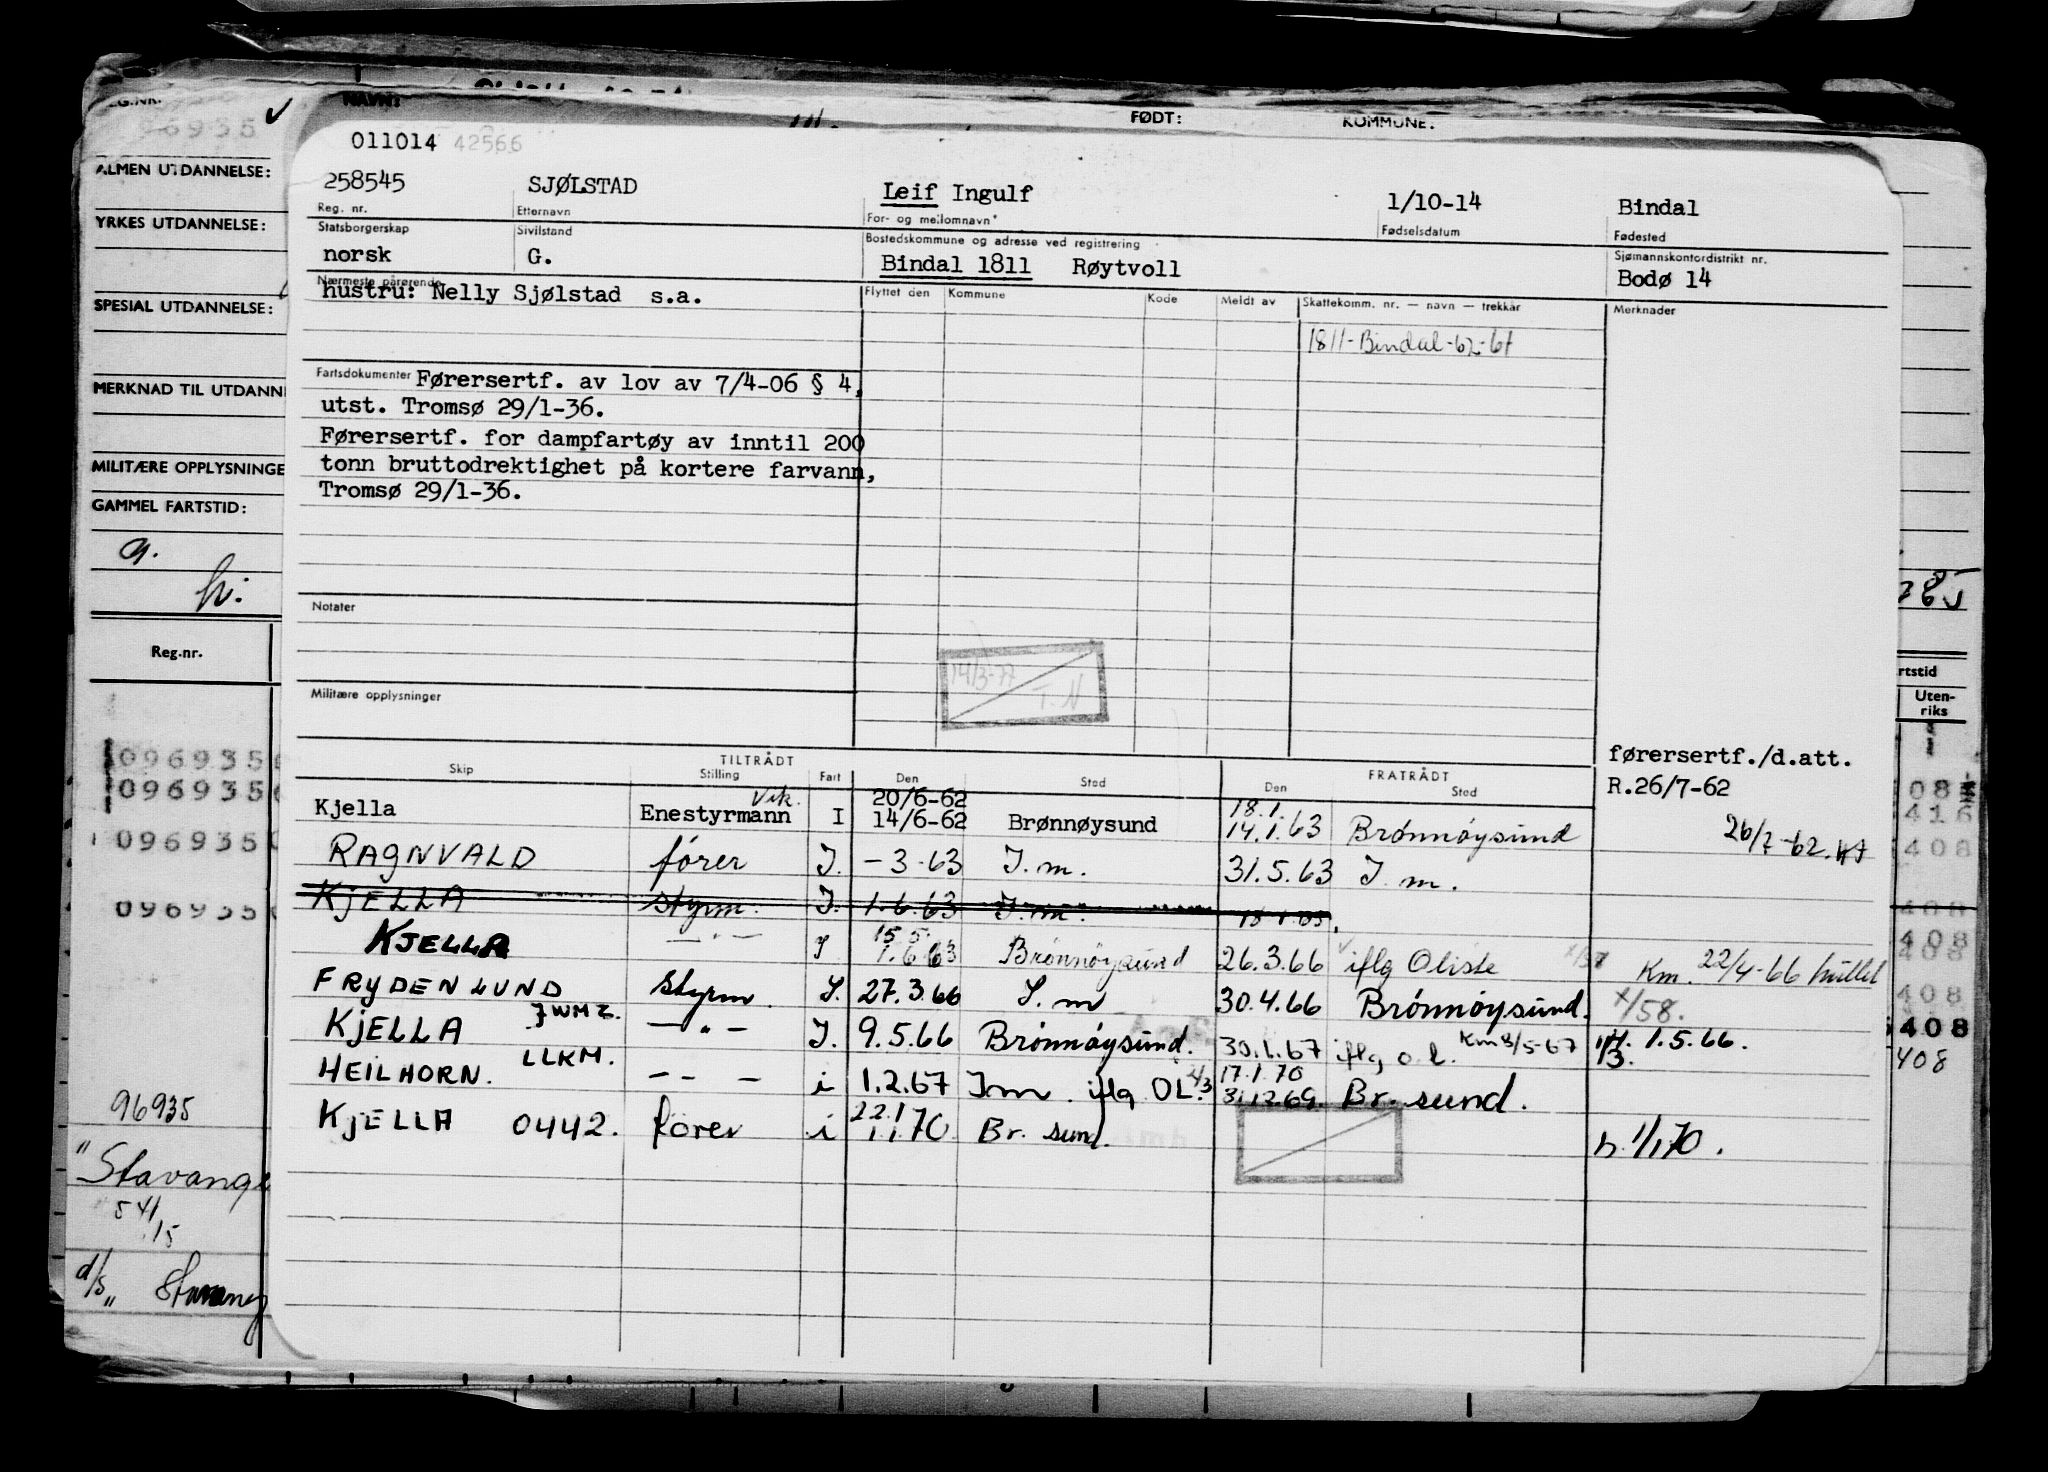 NAVN:
FØDT:
KOMMUNE:
ALMEN UTDANNELSE:
YRKES UTDANNELSE:
SPESIAL UTDANNELSE:
MERKNAD TIL UTDANN
MILITÆRE OPPLYSNINGE
GAMMEL FARTSTID:
Reg.nr.
096935
096935
096935
096935
96935
"Stavange
54/15
d/s „ Stavang
rtstid
Uten-
riks
08
416
408
408
408
408
408
408
408
011014 42566
258545 SJØLSTAD Leif Ingulf 1/10-14 Bindal
Reg. nr. Etternavn For- og mellomnavn* Fødselsdatum Fødested
Statsborgerskap Sivilstand Bostedskommune og adresse ved registrering Sjømannskontordistrikt nr.
norsk G. Bindal 1811 Røytvoll Bodø 14
Nærmeste pårørende Flyttet den Kommune Kode Meldt av Skattekomm. nr. — navn — trekkår Merknader
hustru: Nelly Sjølstad s.a.
1811-Bindal-62-67
Fartsdokumenter Førersertf. av lov av 7/4-06 § 4,
utst. Tromsø 29/1-36.
Førersertf. for dampfartøy av inntil 200
tonn bruttodrektighet på kortere farvann,
Tromsø 29/1-36.
Notater
14/3-77
T.N
Militære opplysninger
førersertf./d.att.
R.26/7-62
TILTRÅDT FRATRÅDT
Skip Stilling Fart Den Sted Den Sted
Vik. 20/6-62 18.1.
Kjella Enestyrmann I 14/6-62 Brønnøysund 14.1.63 Brønnøysund 26/7-62.
RAGNVALD fører I. -3-63 I.m. 31.5.63 I m.
KJELLA styrm. I. 1.6.63 I.m.
15.5.
KJELLA —"— I 1.6.63 Brønnøysund 26.3.66 iflg Oliste Km. 22/4-66 hullet
FRYDENLUND styrm. I. 27.3.66 I.m 30.4.66 Brønnøysund. x/58.
KJELLA JWMZ. —"— I. 9.5.66 Brønnøysund. 30.1.67 iflg o.l. Km 8/5-67 1.5.66.
HEILHORN. LLKM. — — i 1.2.67 I m. iflg OL. 17.1.70
31.12.69. Br. sund.
22.1
KJELLA 0442. fører i 1.1.70 Br. sund. h. 1/1.70.